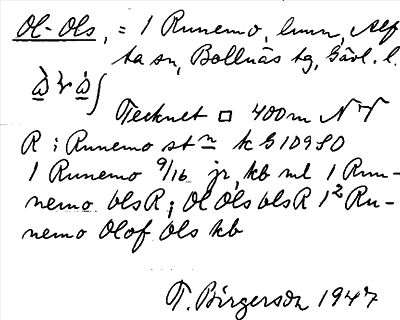 Ol-Ols, = 1 Runemo, hmn, Alf
ta sn, Bollnäs tg, Gävl. l.
Tecknet □ 400m NV
R i Runemo stn k G 109 SO
1 Runemo 9/16 jr, kb ml 1 Run-
nemo blsR; Ol Ols blsR 1² Ru-
nemo Olof Ols kb
T. Birgerson 1947